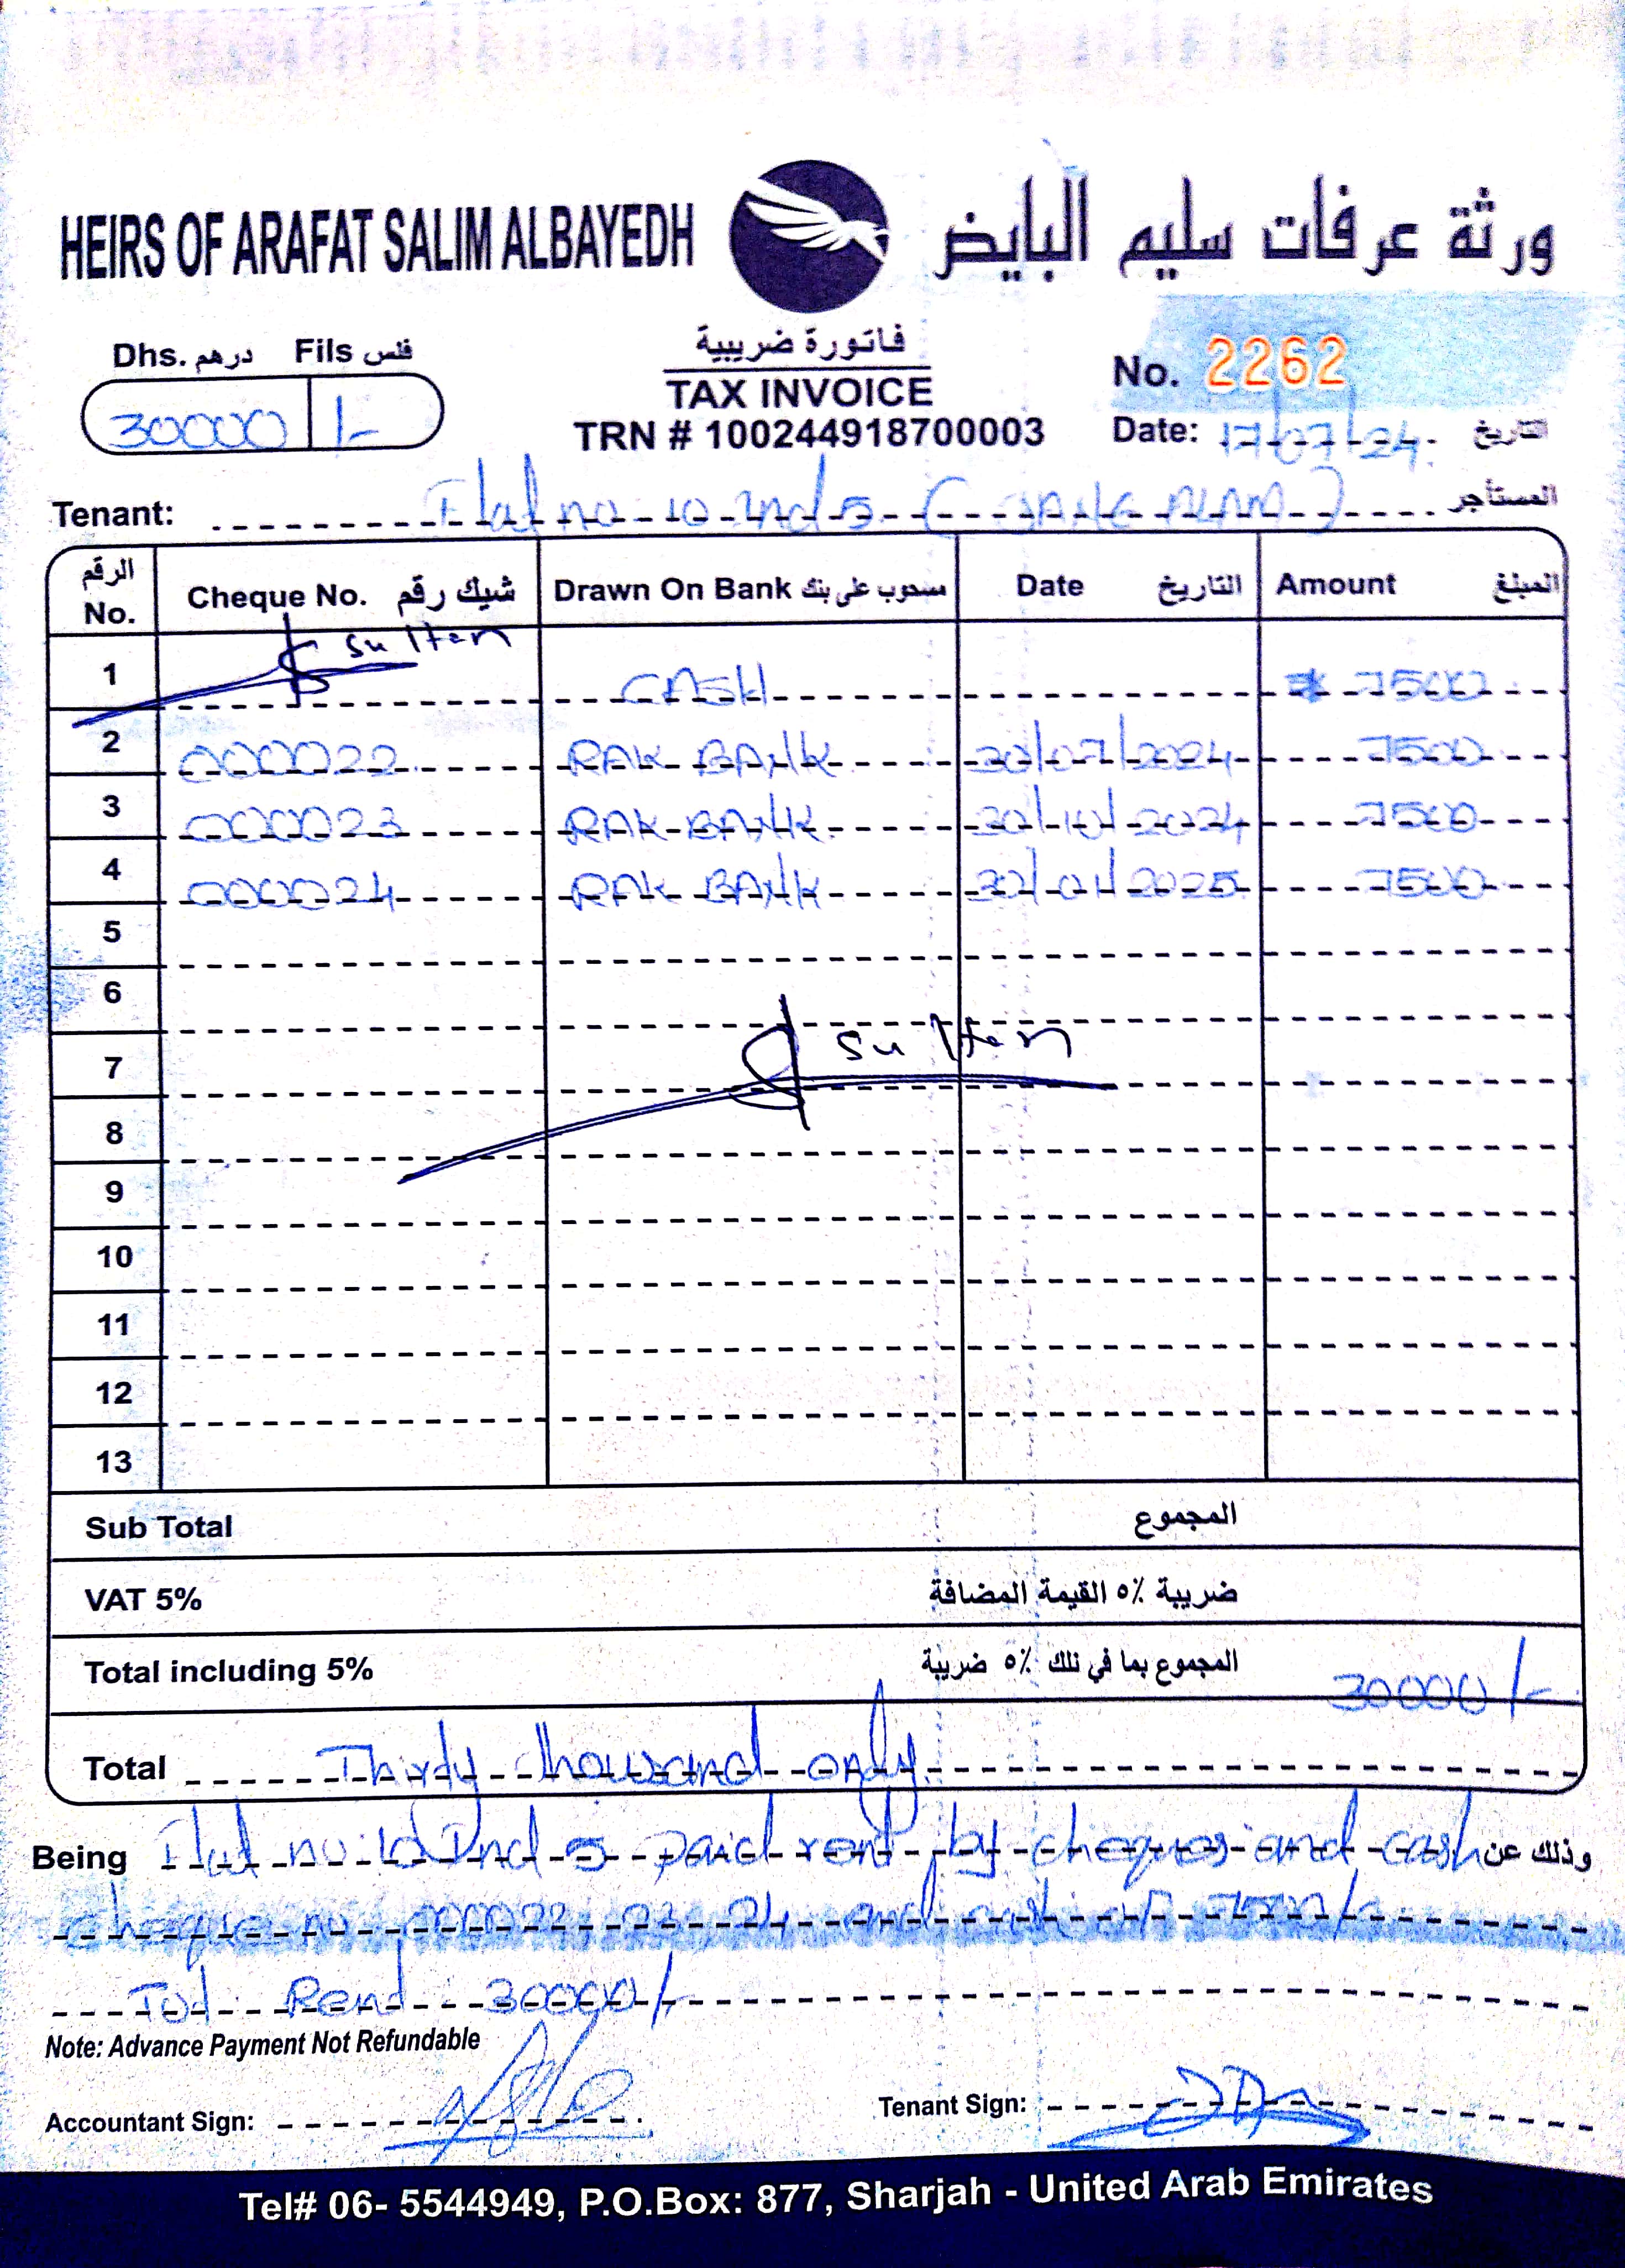 HEIRS OF ARAFAT SALIM ALBAYEDH ورثة عرفات سليم البايض
Dhs. درهم Fils فلس
30000 /-
فاتورة ضريبية
TAX INVOICE
TRN # 100244918700003
No. 2262
Date: 17/07/24. التاريخ
Tenant: Flat no 10 Ind 5 ( ALAM) المستأجر
الرقم No. Cheque No. شيك رقم Drawn On Bank مسحوب على بنك Date التاريخ Amount المبلغ
Sulten
1 CASH 7500
2 000022 RAK BANK 30/07/2024 7500
3 000023 RAK BANK 30/10/2024 7500
4 000024 RAK BANK 30/01/2025 7500
5
6
Sulten
7
8
9
10
11
12
13
Sub Total المجموع
VAT 5% ضريبة ٥٪ القيمة المضافة
Total including 5% المجموع بما في ذلك ٥٪ ضريبة 30000/-
Total Thirdy thousand only
Being Flat no: 10 Ind 5 paid rent by cheques and cash وذلك عن
cheque no 000022, 23 24 and cash of 7500/-
Tot Rend 30000/-
Note: Advance Payment Not Refundable
Accountant Sign:
Tenant Sign:
Tel# 06- 5544949, P.O.Box: 877, Sharjah - United Arab Emirates